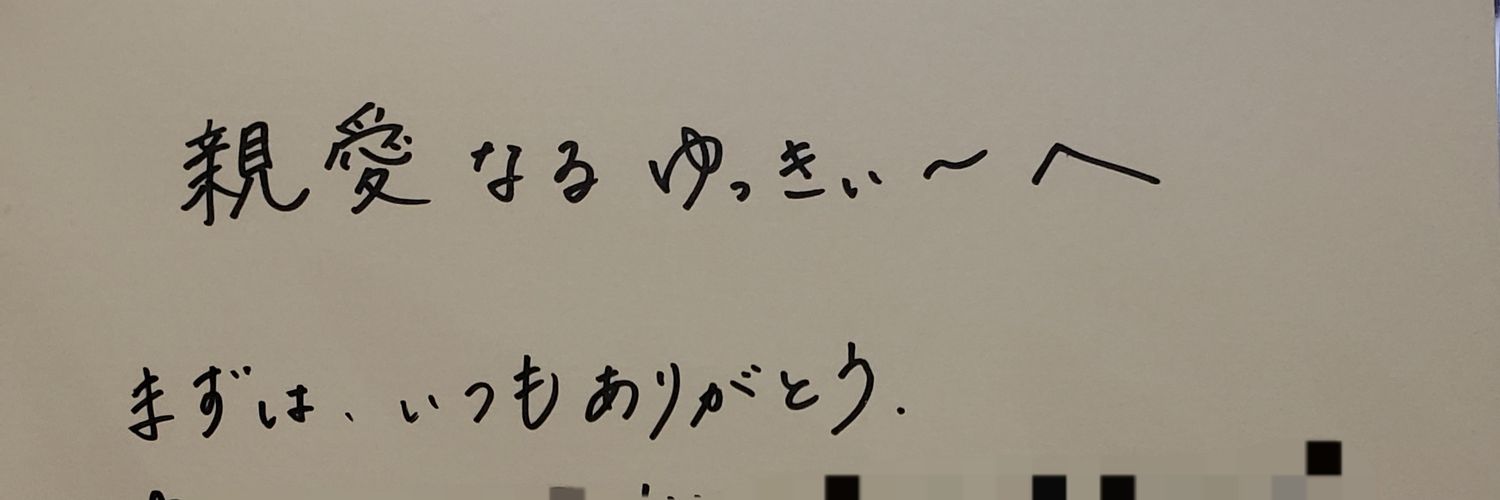 親愛なるゆっきぃ～へ
まずは、いつもありがとう.